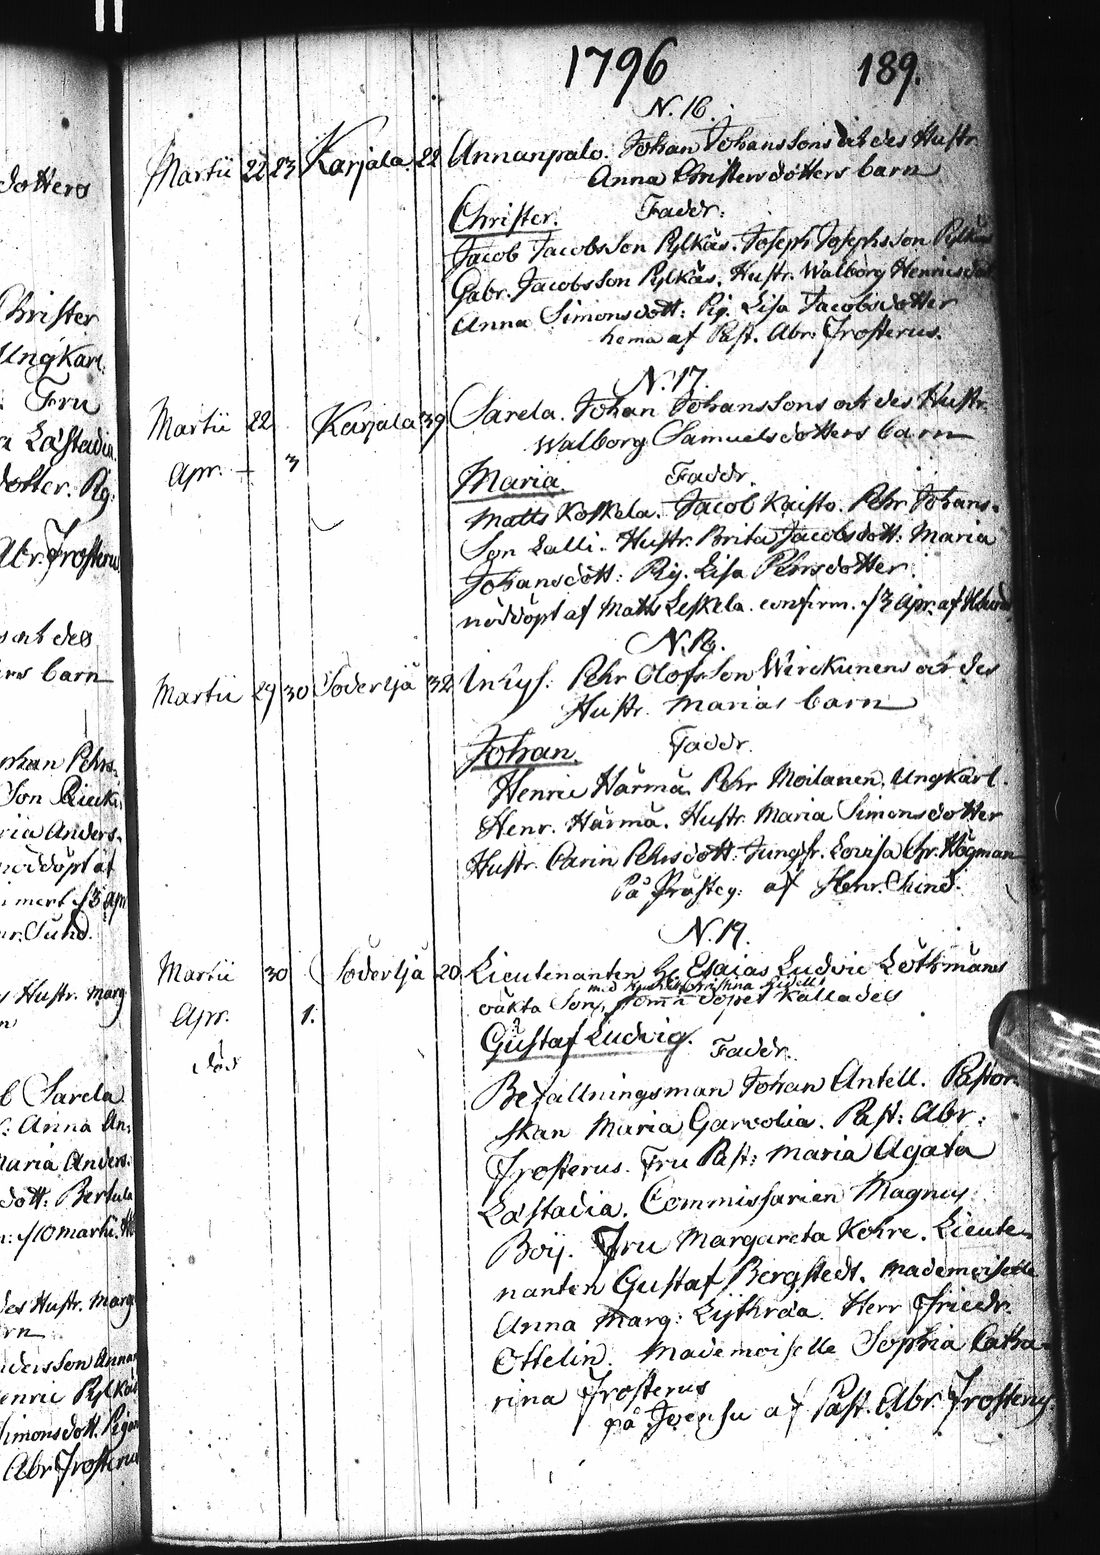 dotters
Christer
Ungkarl.
Fru
Lästadia.
dotter. Pig:
Abr. Frosterus
och des
barn
Johan Pehrs-
Son
Maria Anders-
nöddöpt af
Hustr. Marg
Sarela
Anna An-
Maria Anders-
dott: Bertula
10 Martii.
des Hustr. Marg
Son Annan
Henric Pylkäs
Simonsdott. Pigan
Abr Frosterus
1796 189.
N. 16.
Martii 22 23 Karjala. 22 Annanpalo. Johan Johanssons och des Hustr.
Anna Christersdotters barn
Christer. Faddr:
Jacob Jacobsson Pylkäs. Joseph Josephsson Pylkäs
Gabr. Jacobsson Pylkäs. Hustr. Walborg Henricsdott
Anna Simonsdott: Pig. Lisa Jacobsdotter
hema af Past. Abr. Frosterus.
N. 17.
Martii 22 Karjala 39 Sarela. Johan Johanssons och des Hustr.
Walborg Samuelsdotters barn
Apr. + 3
Maria. Faddr.
Matts Koskela. Jacob Kaisto. Pehr Johans-
Son Lalli. Hustr. Brita Jacobsdott: Maria
Johansdott: Pig. Lisa Pehrsdotter.
nöddöpt af Matts Leskela. confirm. 3 Apr. af
N. 18.
Martii 29 30 Söderljä 32 Inhys: Pehr Olofsson Werckunens och des
Hustr. Marias barn
Johan. Faddr.
Henric Härmä. Pehr Moilanen. Ungkarl.
Henr. Härmä. Hustr. Maria Simonsdotter
Hustr. Carin Pehrsdott: Jungfr. Lovisa Chr. Högman
På Prästeg: af Henr. Chind.
N. 19.
Martii 30 Söderljä 20 Lieutenanten H. Esaias Ludvic Löthmans
med Christina
oäkta Son, som i dopet kallades
Apr. 1.
död
Gustaf Ludvig. Faddr.
Befallningsman Johan Antell. Pastor-
skan Maria Garvolia. Past: Abr:
Frosterus. Fru Past: Maria Agata
Lästadia. Commissarien Magnus
Boij. Fru Margareta Kohre. Lieute-
nanten Gustaf Bergstedt. Mademoiselle
Anna Marg: Lijthræa. Herr Friedr.
Ottelin. Mademoiselle Sophia Catha-
rina Frosterus
på Joensu af Past. Abr. Frosterus.